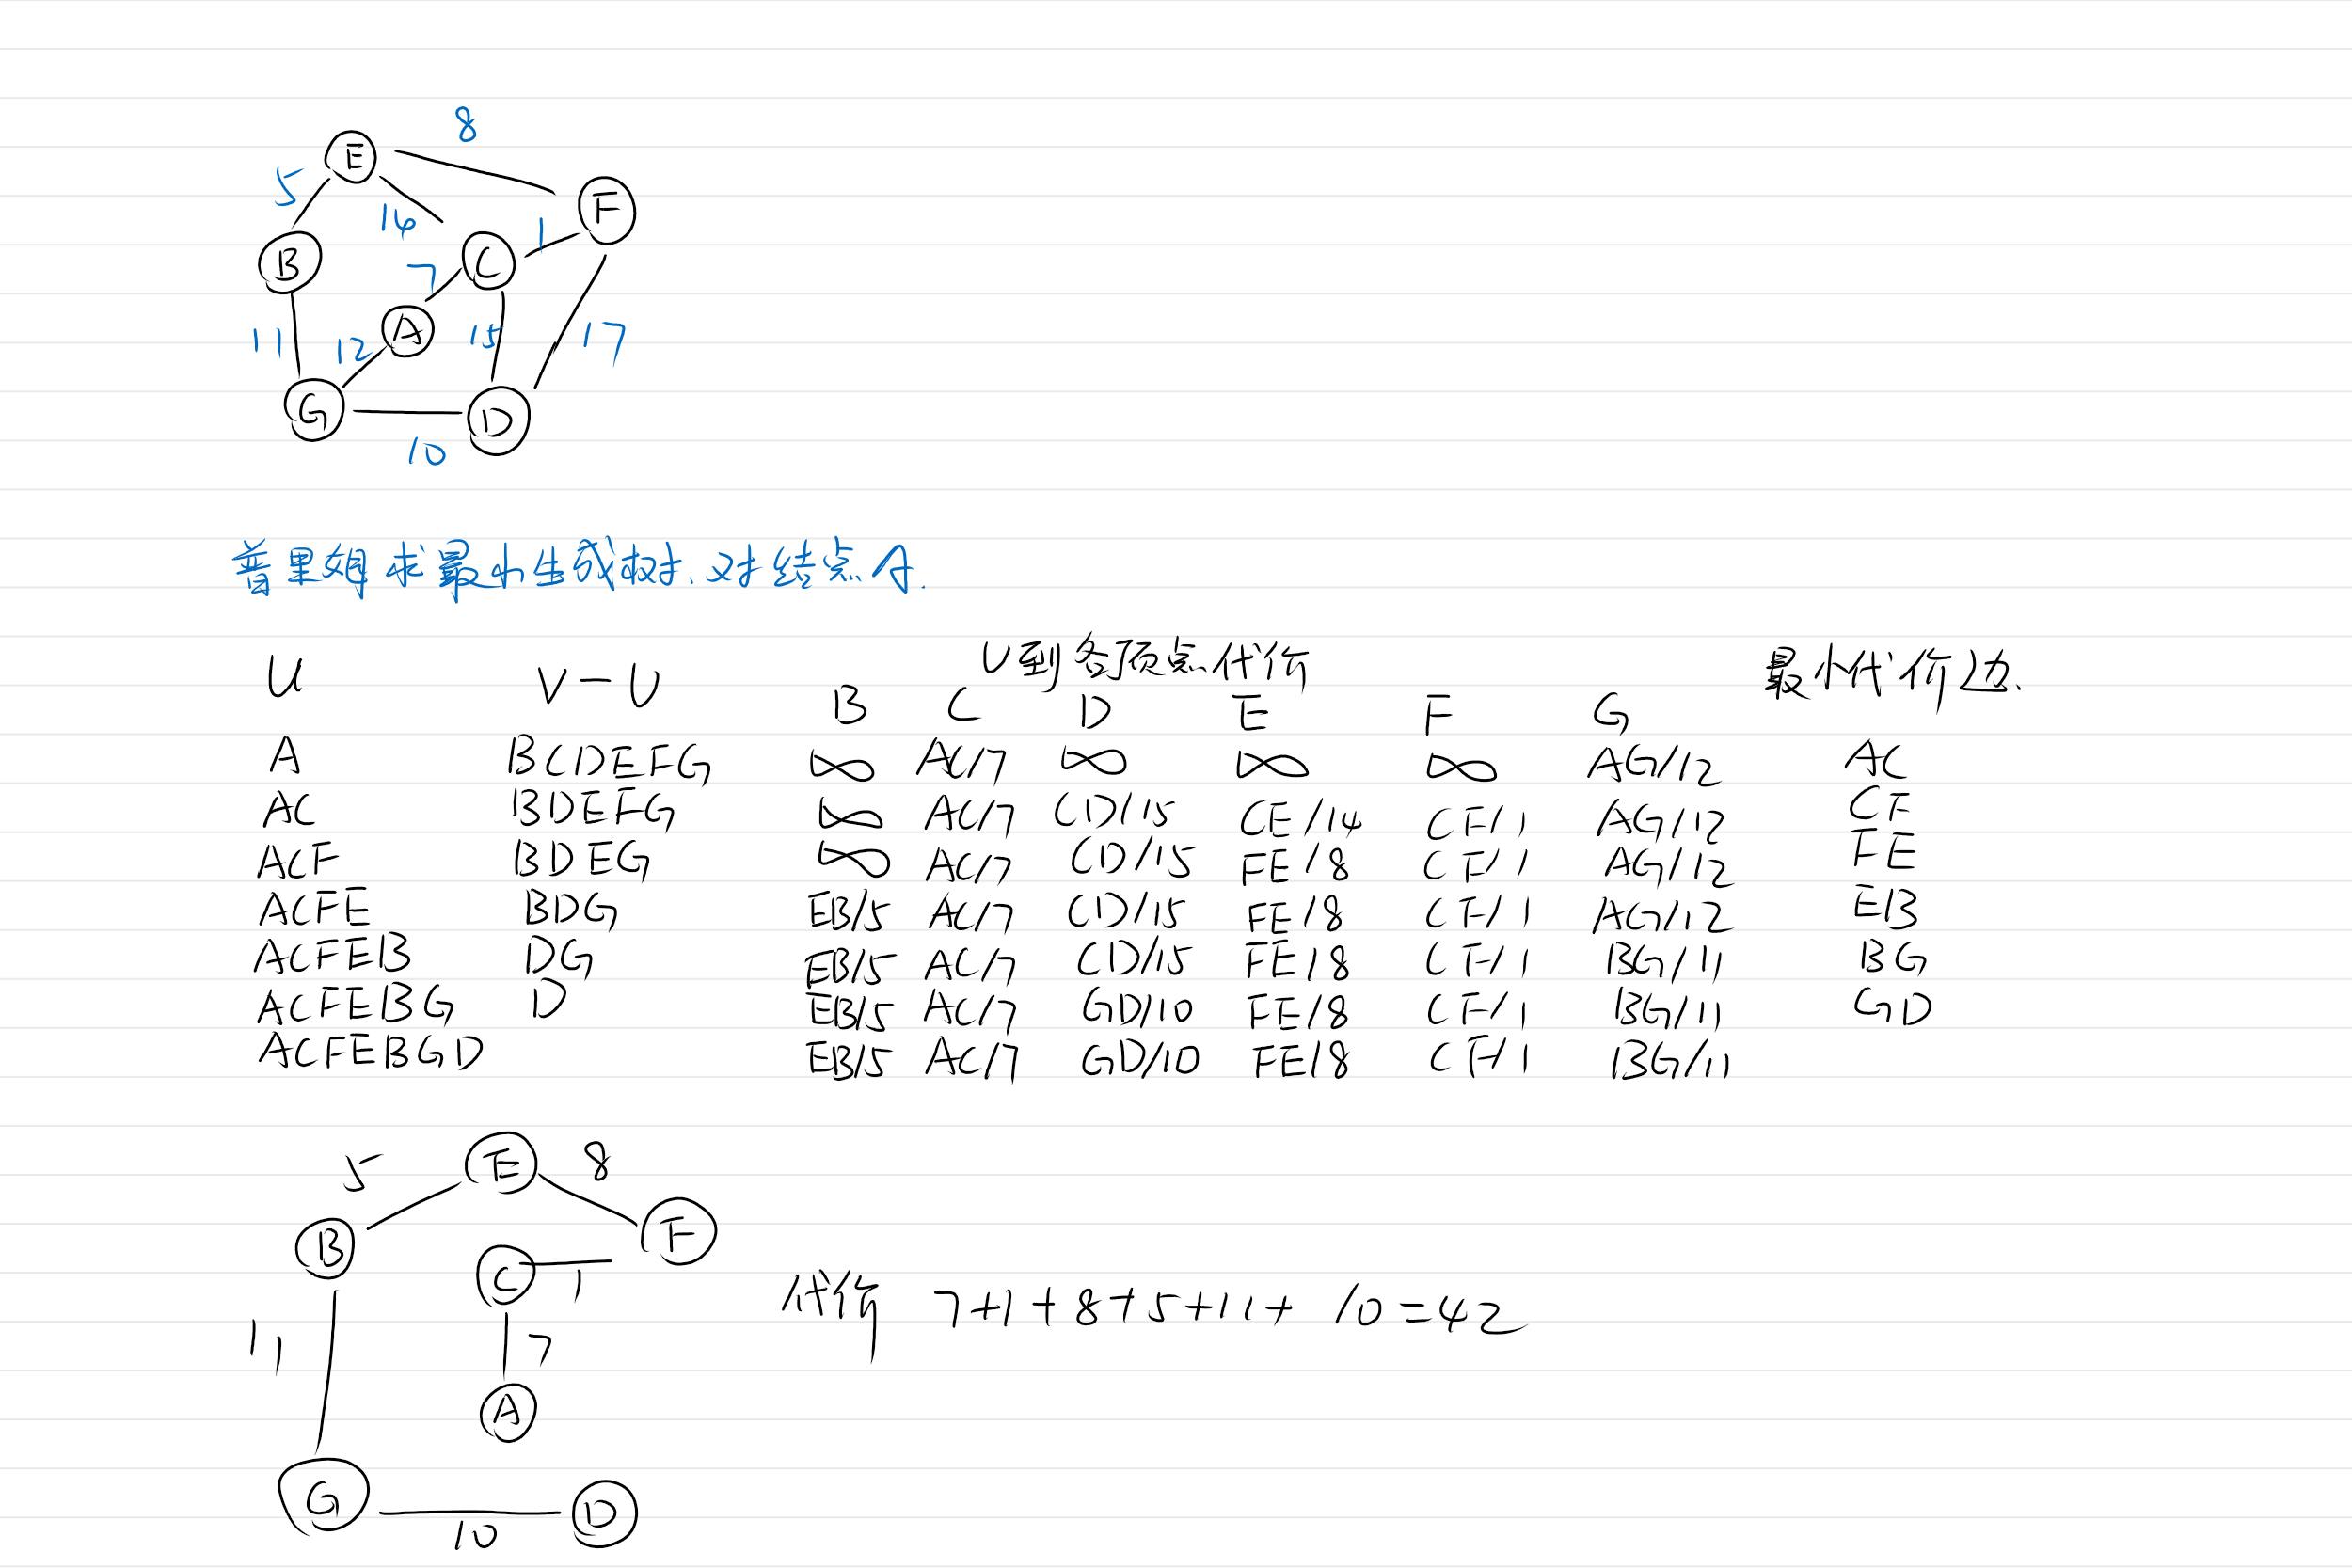 8
E
5
14
F
1
B
C
7
A
11
12
15
17
G
D
10
普里姆求最小生成树、对结点A.
U V-U U到各顶点代价 最小代价边.
B C D E F G
A BCDEFG ∞ AC/7 ∞ ∞ ∞ AG/12 AC
AC BDEFG ∞ AC/7 CD/15 CE/14 CF/1 AG/12 CF
ACF BDEG ∞ AC/7 CD/15 FE/8 CF/1 AG/12 FE
ACFE BDG EB/5 AC/7 CD/15 FE/8 CF/1 AG/12 EB
ACFEB DG EB/5 AC/7 CD/15 FE/8 CF/1 BG/11 BG
ACFEBG D EB/5 AC/7 GD/10 FE/8 CF/1 BG/11 GD
ACFEBGD EB/5 AC/7 GD/10 FE/8 CF/1 BG/11
5 E 8
B F
C 1
代价 7+1+8+5+11+10=42
11 7
A
G D
10